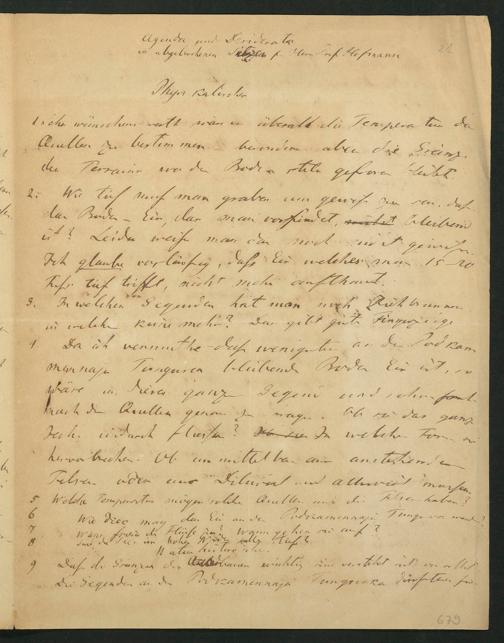 Agenda und Desiderata
in abgebrochenen Sätzen f. Herrn Prof. Hofmann
21
Physikalische
1. Sehr wünschenswerth wäre es überall die Temperatur der
Quellen zu bestimmen besonders aber die Gränze
des Terrains wo der Boden stets gefroren bleibt
2. Wie tief muß man graben um gewiß zu sein, daß
das Boden-Eis, das man vorfindet, bleibend
ist? Leider weiß man das noch nicht genau.
Ich glaube vorläufig, daß Eis welches man 15-20
Fuß tief trifft, nicht mehr aufthaut.
3. In welchen Gegenden hat man noch
in welchen keine mehr? Das gibt gute Fingerzeige
4. Da ich vermuthe daß wenigstens an der Podkam
mennaja Tunguska bleibendes Boden Eis ist, so
wäre in dieser ganzen Gegend und schon
nach den Quellen genau zu fragen. Ob sie das ganze
Jahr hindurch fließen? In welcher Form sie
hervorbrechen. Ob unmittelbar aus anstehenden
Felsen oder aus Diluvial und Alluvial massen.
5 Welche Temperaturen mögen solche Quellen aus den Felsen haben?
6 Wie dick mag das Eis an der Podkamennaja Tunguska werden?
7 Wann frieren die Flüsse zu, wann gehen sie auf?
8
9 Daß die Gränzen des wichtig sind versteht sich von selbst
Die Gegenden an der Podkamennaja Tunguska dürften für
679